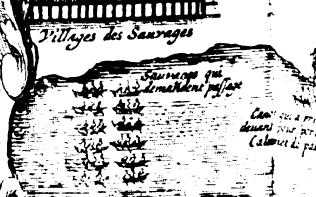 Villages des Sauvages
Sauvages qui
demandent passage
Cano qui a
devans pour
Calumet de